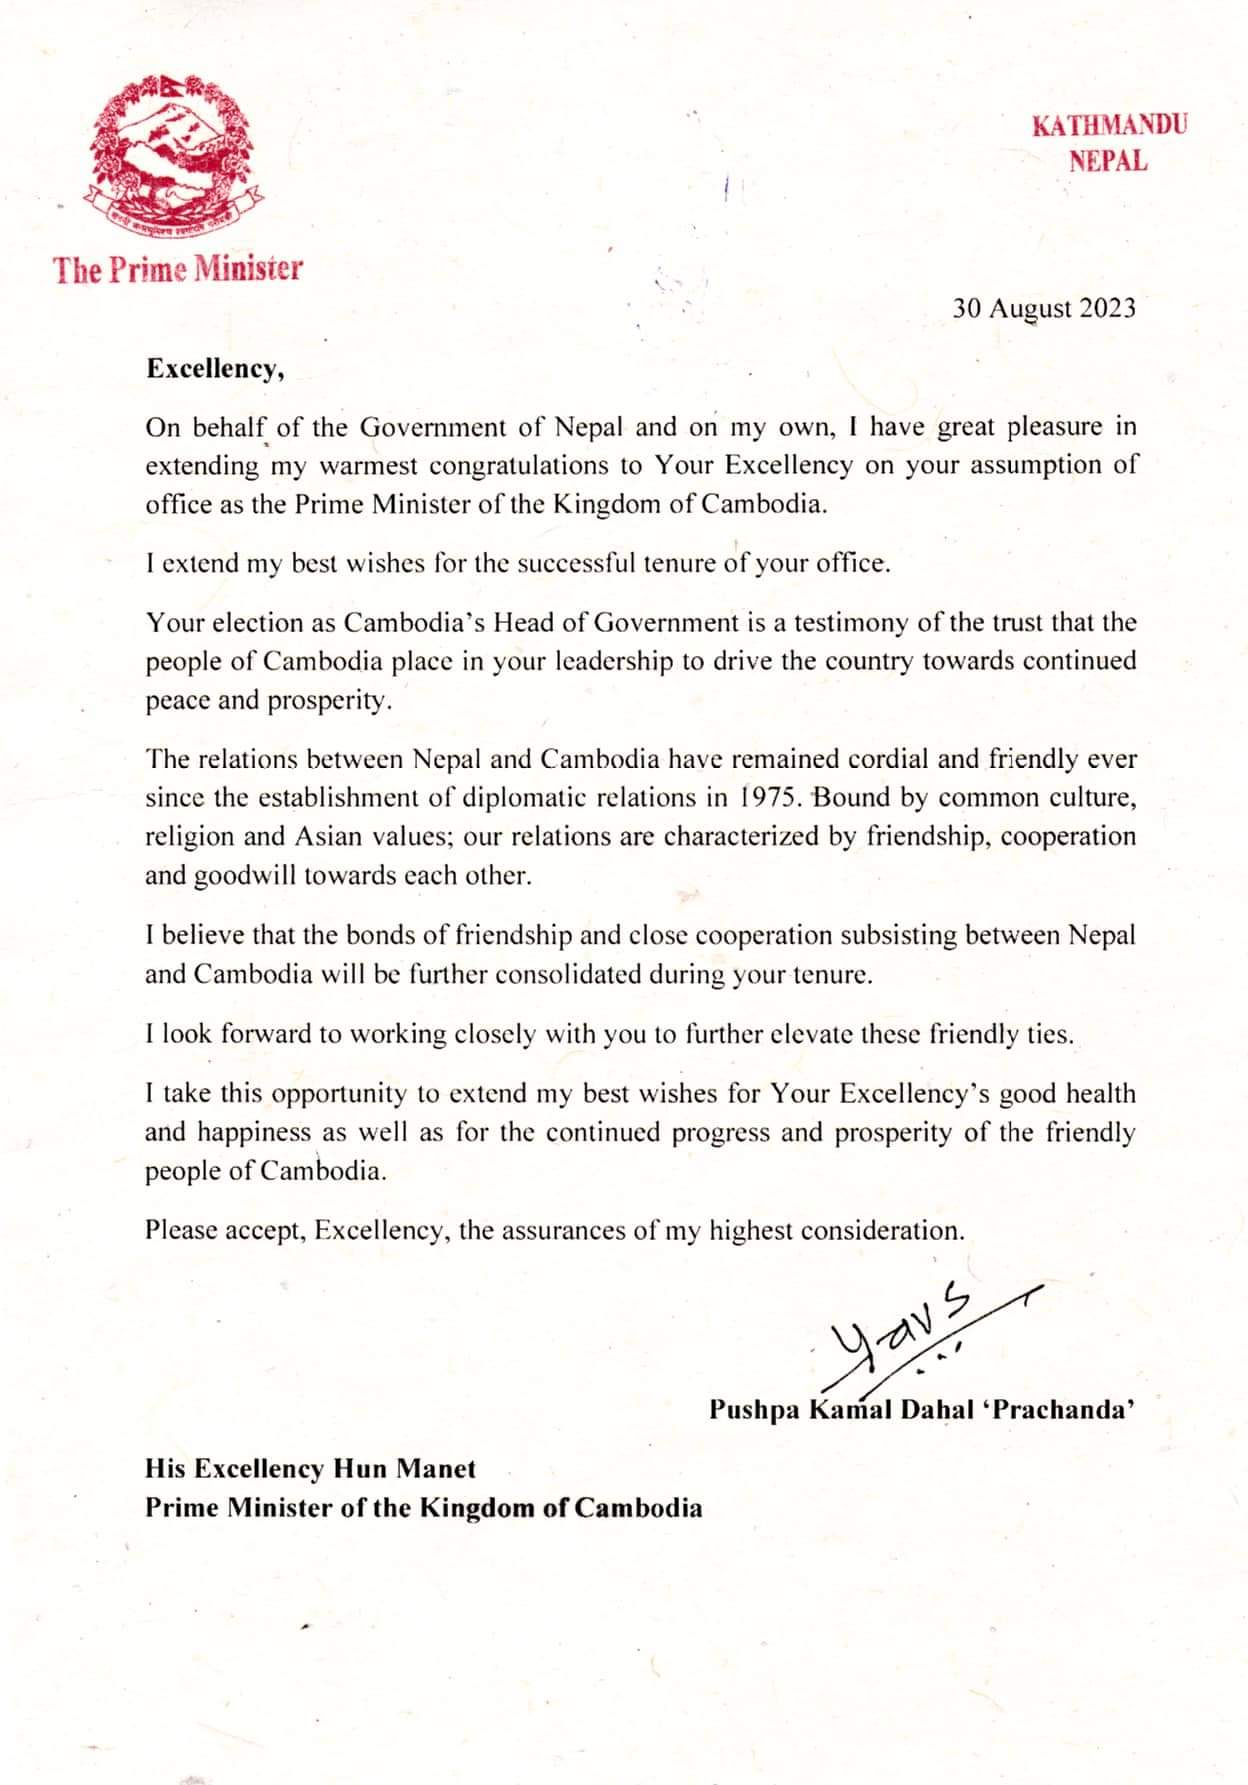 KATHMANDU
NEPAL
The Prime Minister
30 August 2023
Excellency,
On behalf of the Government of Nepal and on my own, I have great pleasure in
extending my warmest congratulations to Your Excellency on your assumption of
office as the Prime Minister of the Kingdom of Cambodia.
I extend my best wishes for the successful tenure of your office.
Your election as Cambodia's Head of Government is a testimony of the trust that the
people of Cambodia place in your leadership to drive the country towards continued
peace and prosperity.
The relations between Nepal and Cambodia have remained cordial and friendly ever
since the establishment of diplomatic relations in 1975. Bound by common culture,
religion and Asian values; our relations are characterized by friendship, cooperation
and goodwill towards each other.
I believe that the bonds of friendship and close cooperation subsisting between Nepal
and Cambodia will be further consolidated during your tenure.
I look forward to working closely with you to further elevate these friendly ties.
I take this opportunity to extend my best wishes for Your Excellency's good health
and happiness as well as for the continued progress and prosperity of the friendly
people of Cambodia.
Please accept, Excellency, the assurances of my highest consideration.
Pushpa Kamal Dahal ‘Prachanda’
His Excellency Hun Manet
Prime Minister of the Kingdom of Cambodia